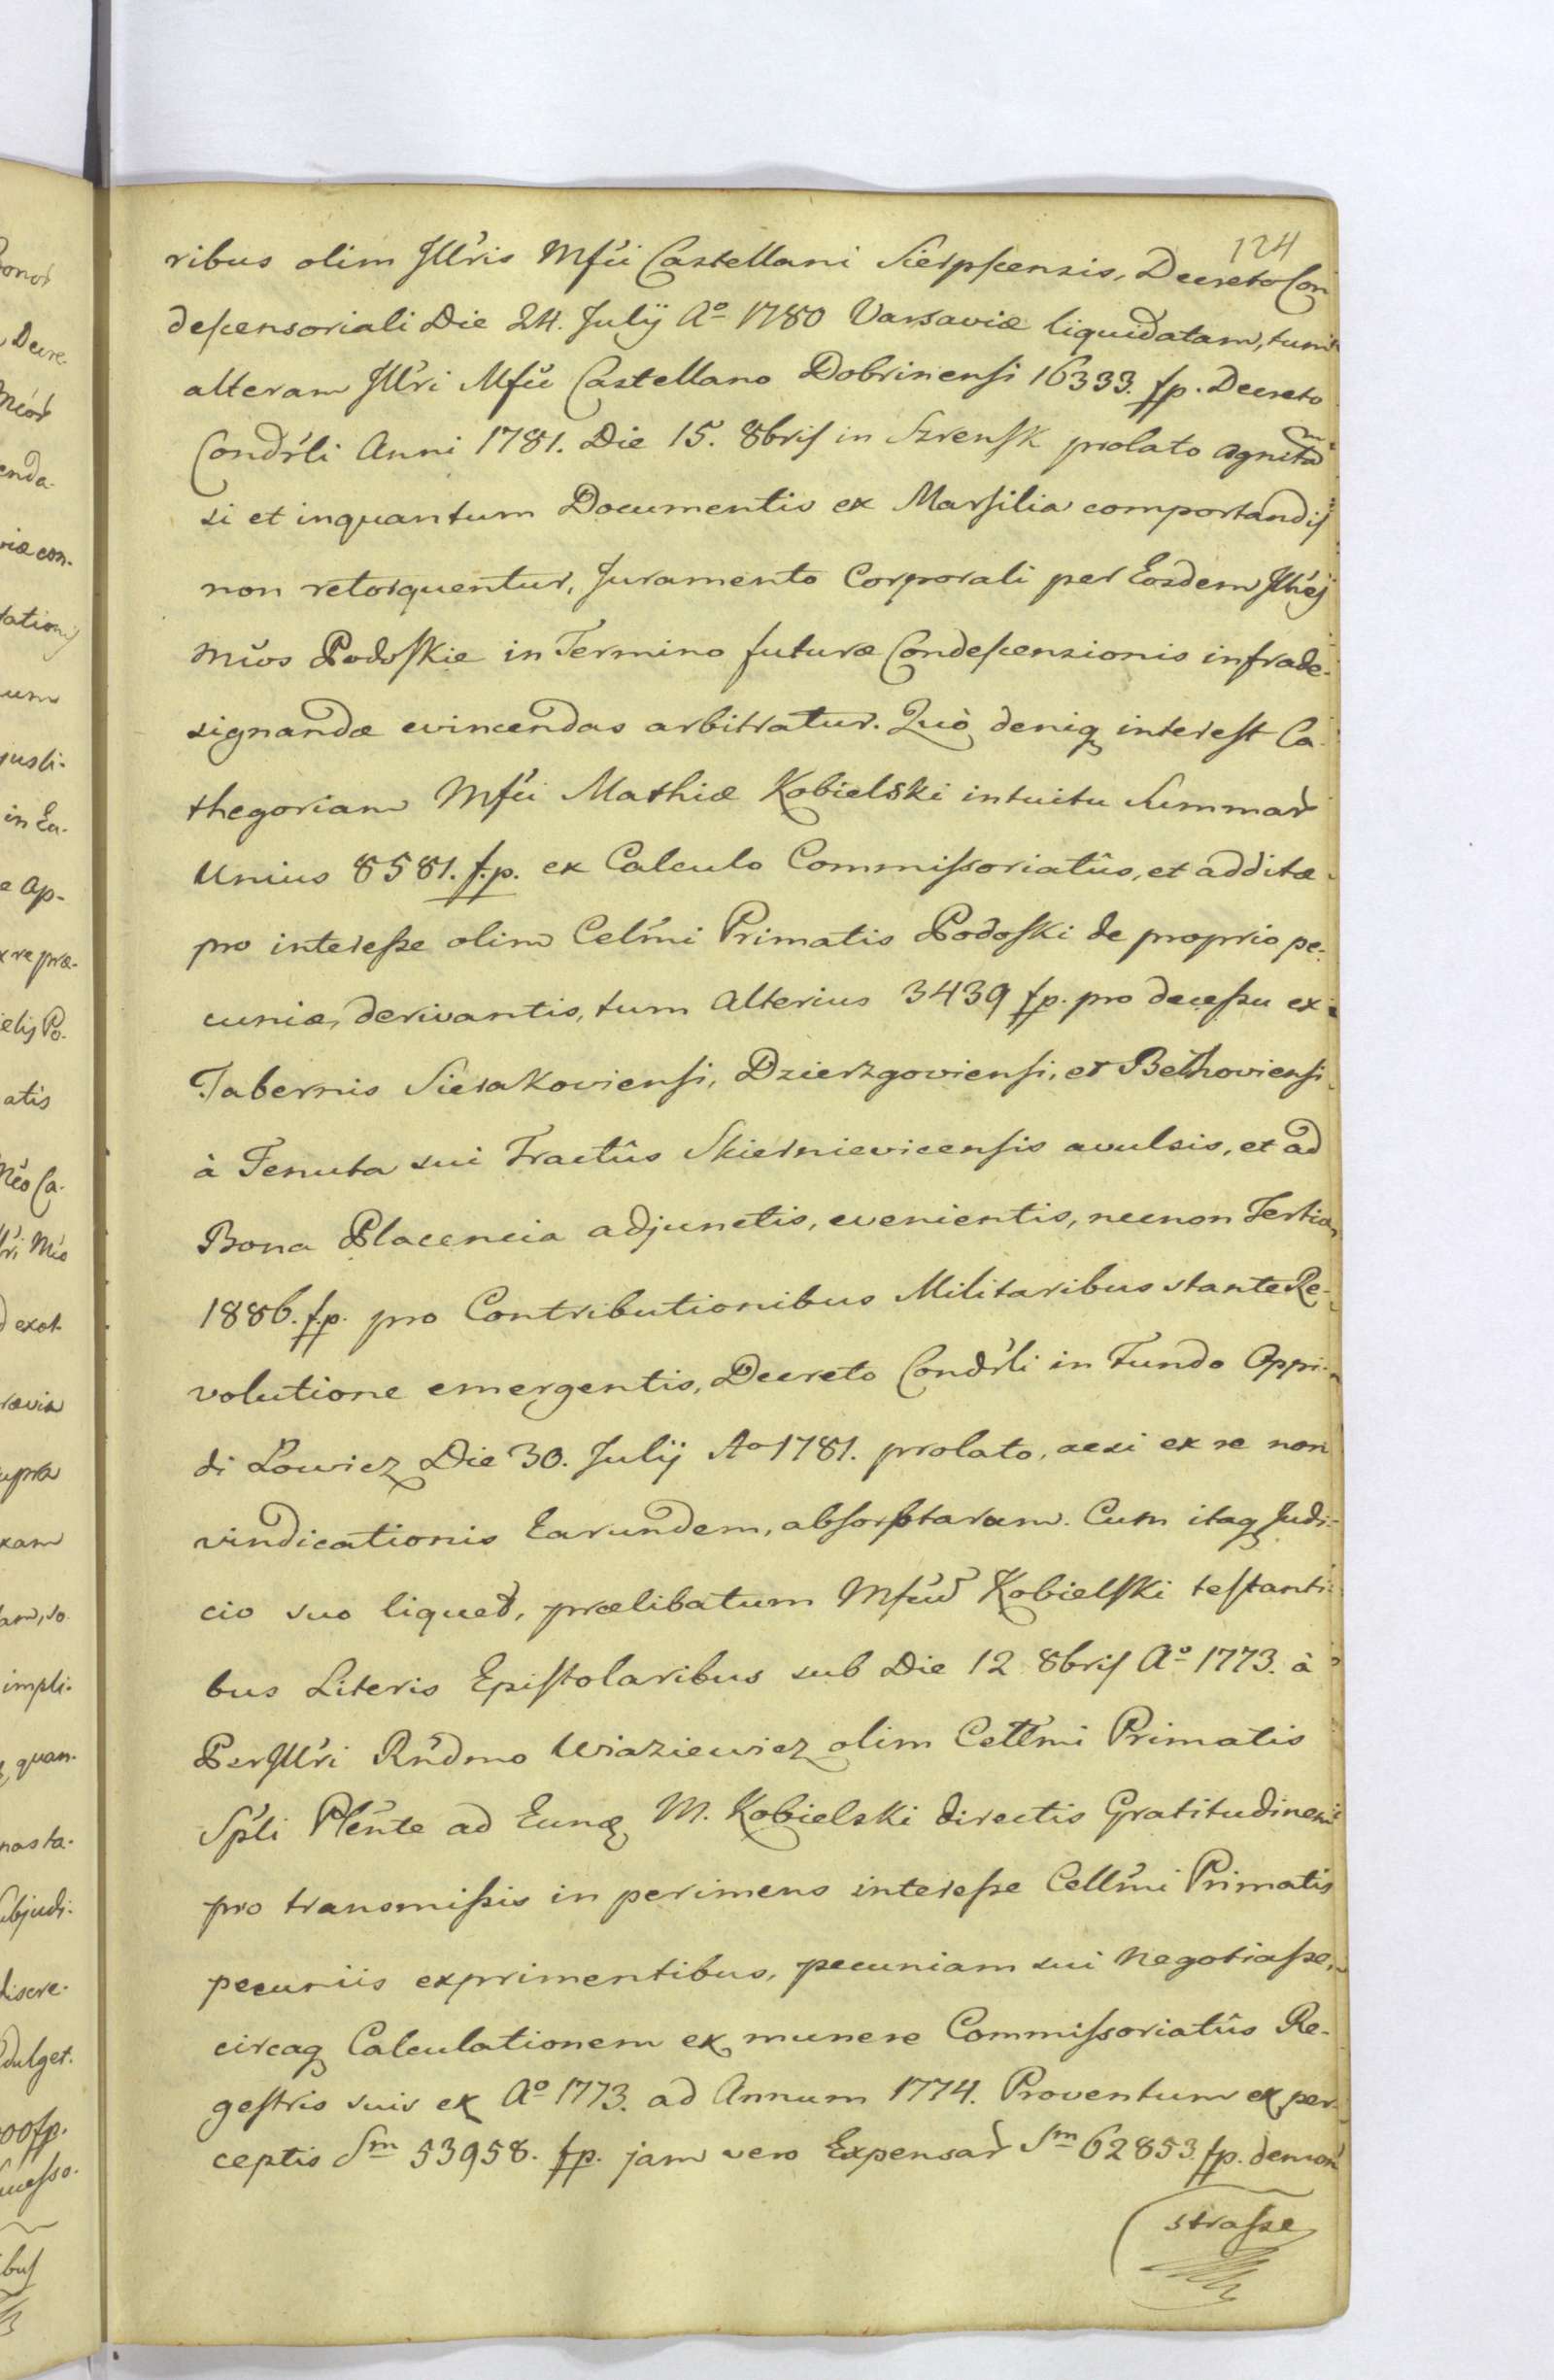 124
ribus olim Jllris Mfci Castellani Sierpscensis, Decreto Con
descensoriali Die 24. Julij Aº 1780 Varsaviæ liquidatam, tum
alteram Jllri Mfco Castellano Dobrinensi 16333. fp. Decreto
Condrli Anni 1781. Die 15. 8bris in Szrensk prolato agnitam
si et inquantum Documentis ex Marsilia comportandis
non retorquentur, Juramento Corporali per Eosdem Jllres
Mcos Podoskie in Termino futuræ Condescensionis infrade-
signandæ evincendas arbitratur. Quò deniq interest Ca-
thegoriam Mfci Mathiæ Kobielski intuitu Summar
Unius 8581. f.p. ex Calculo Commissoriatûs, et additæ
pro interesse olim Celmi Primatis Podoski de proprio pe-
cuniæ, derivantis, tum alterius 3439 fp. pro decessu ex
Tabernis Sierakoviensi, Dzierzgoviensi, et Bethoviensi
à Tenuta sui Tractûs Skiernievicensis avulsis, et ad
Bona Placencia adjunctis, evenientis, necnon Tertiæ
1886. f.p. pro Contributionibus Militaribus stante Re-
volutione emergentis, Decreto Condrli in Fundo Oppi-
di Lowicz Die 30. Julij Aº 1781. prolato, acsi ex re non
vindicationis Earundem, absorptarum. Cum itaq Judi-
cio suo liquet, prælibatum Mfcum Kobielski testanti-
bus Literis Epistolaribus sub Die 12 8bris Aº 1773. à
PerJllri Rndmo Wiaziewicz olim Cellmi Primatis
Spli Plente ad Eunq M. Kobielski directis Gratitudinem
pro transmissis in perimens interesse Cellmi Primatis
pecuniis exprimentibus, pecuniam sui negotiasse,
circaq Calculationem ex munere Commissoriatûs Re-
gestris suis ex Aº 1773. ad Annum 1774. Proventum ex per-
ceptis Sm 53958. fp. jam vero Expensar Sm 62853 fp. demon
strasse